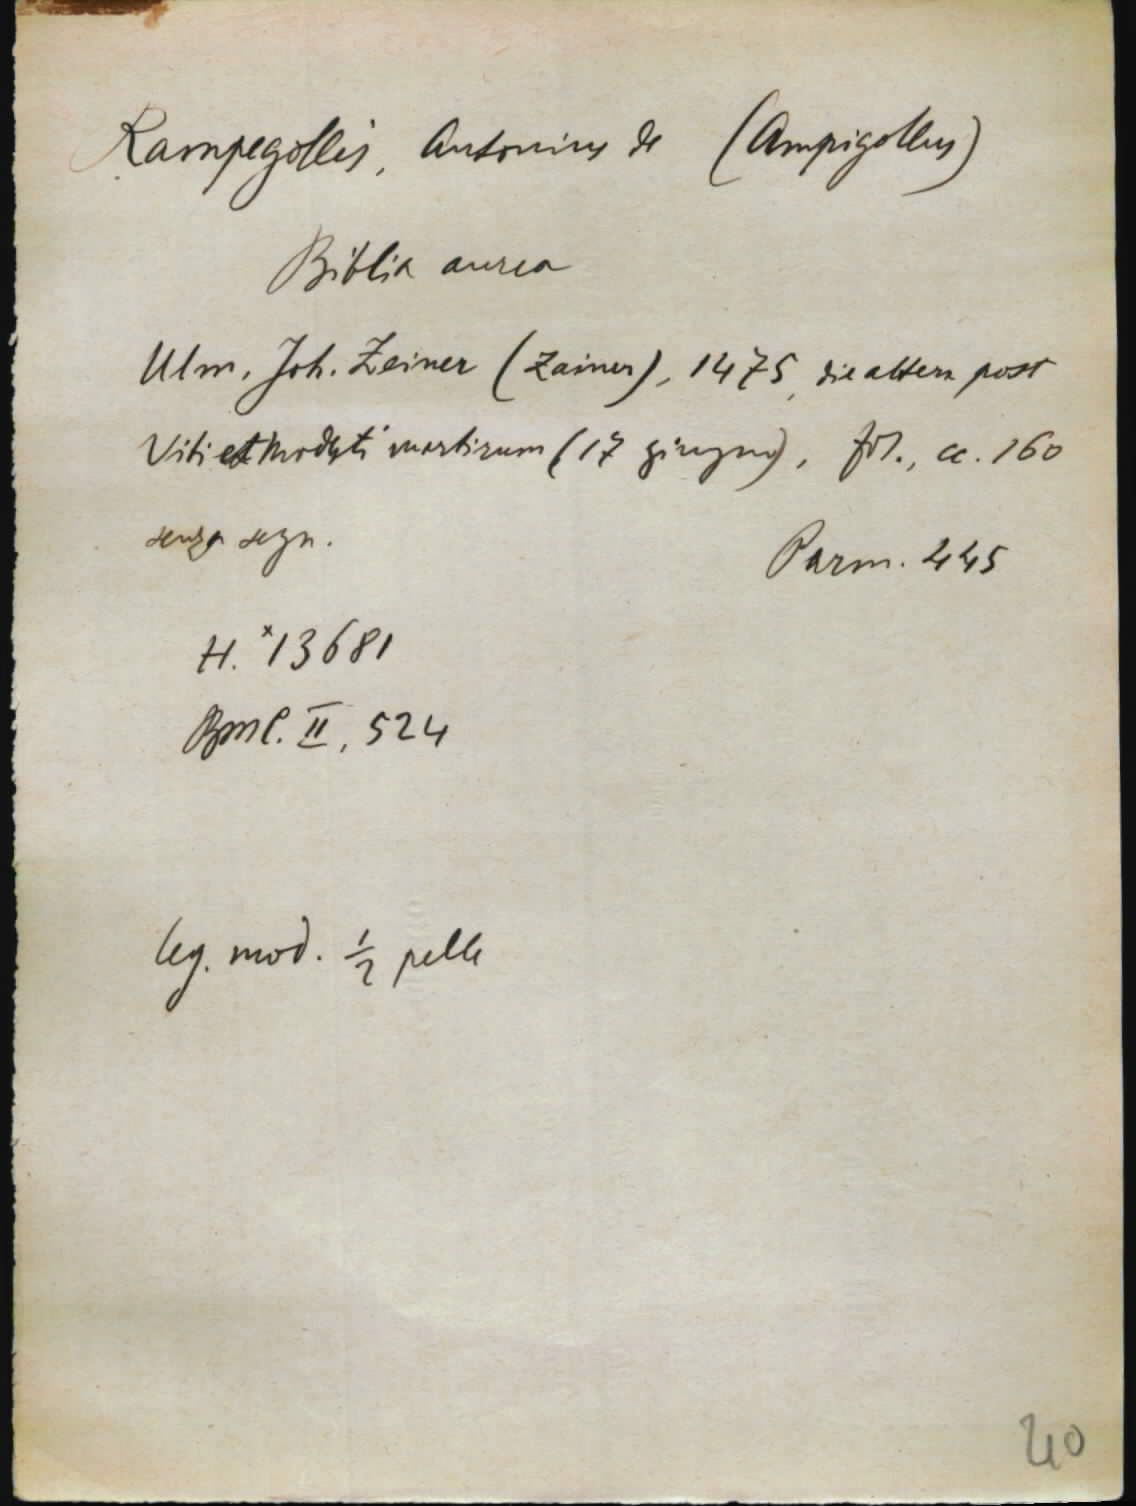 Rampegollis, Antonius de (Ampigollus)
Biblia aurea
Ulm, Joh. Zeiner (Zainer), 1475, die altera post
Viti et Modesti martirum (17 giugno), fol., cc. 160
senza segn.
Parm. 445
H. *13681
BMC. II, 524
leg. mod. ½ pelle
40